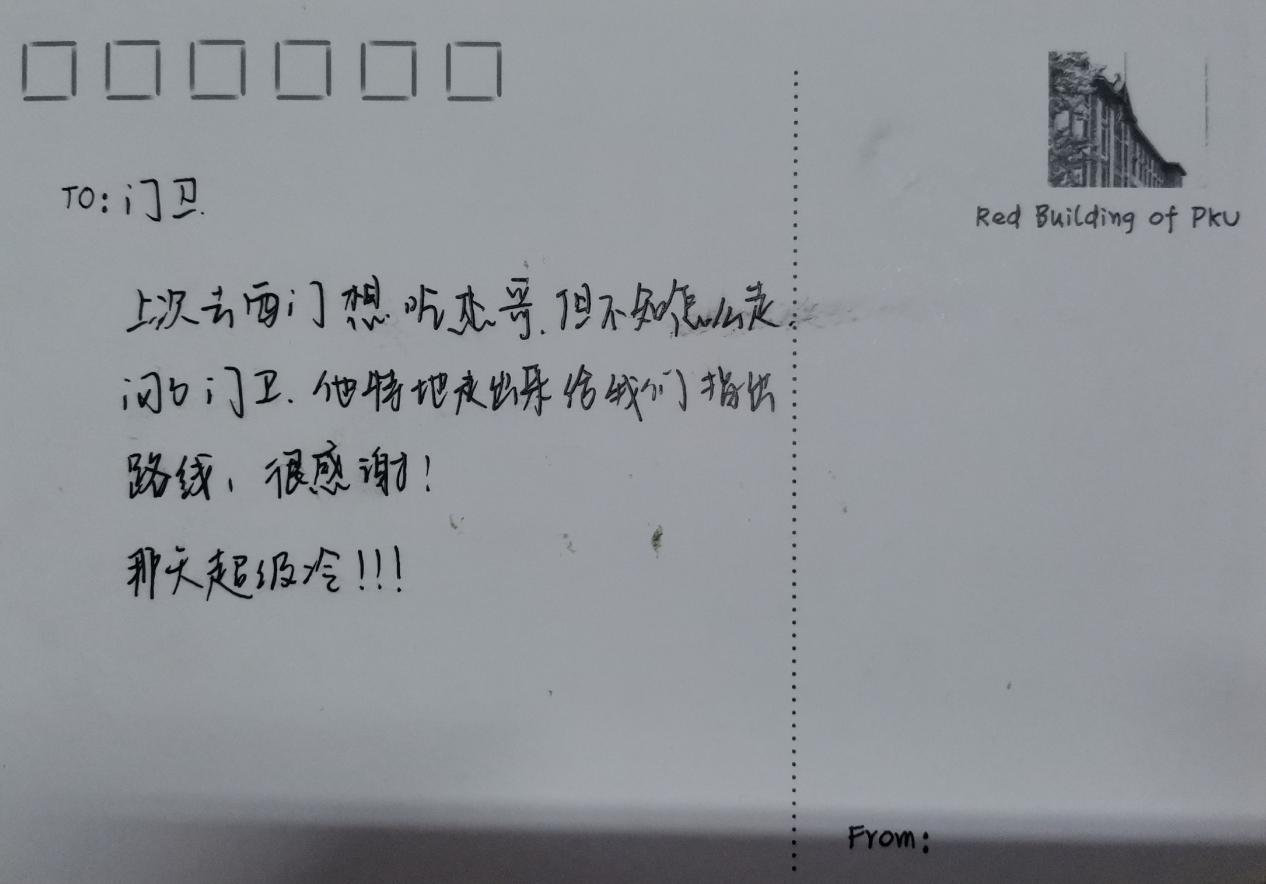 TO: 门卫.
上次去西门想吃杰哥.但不知怎么走.
问了门卫.他特地走出来给我们指出
路线，很感谢！
那天超级冷！！！
Red Building of PKU
From: